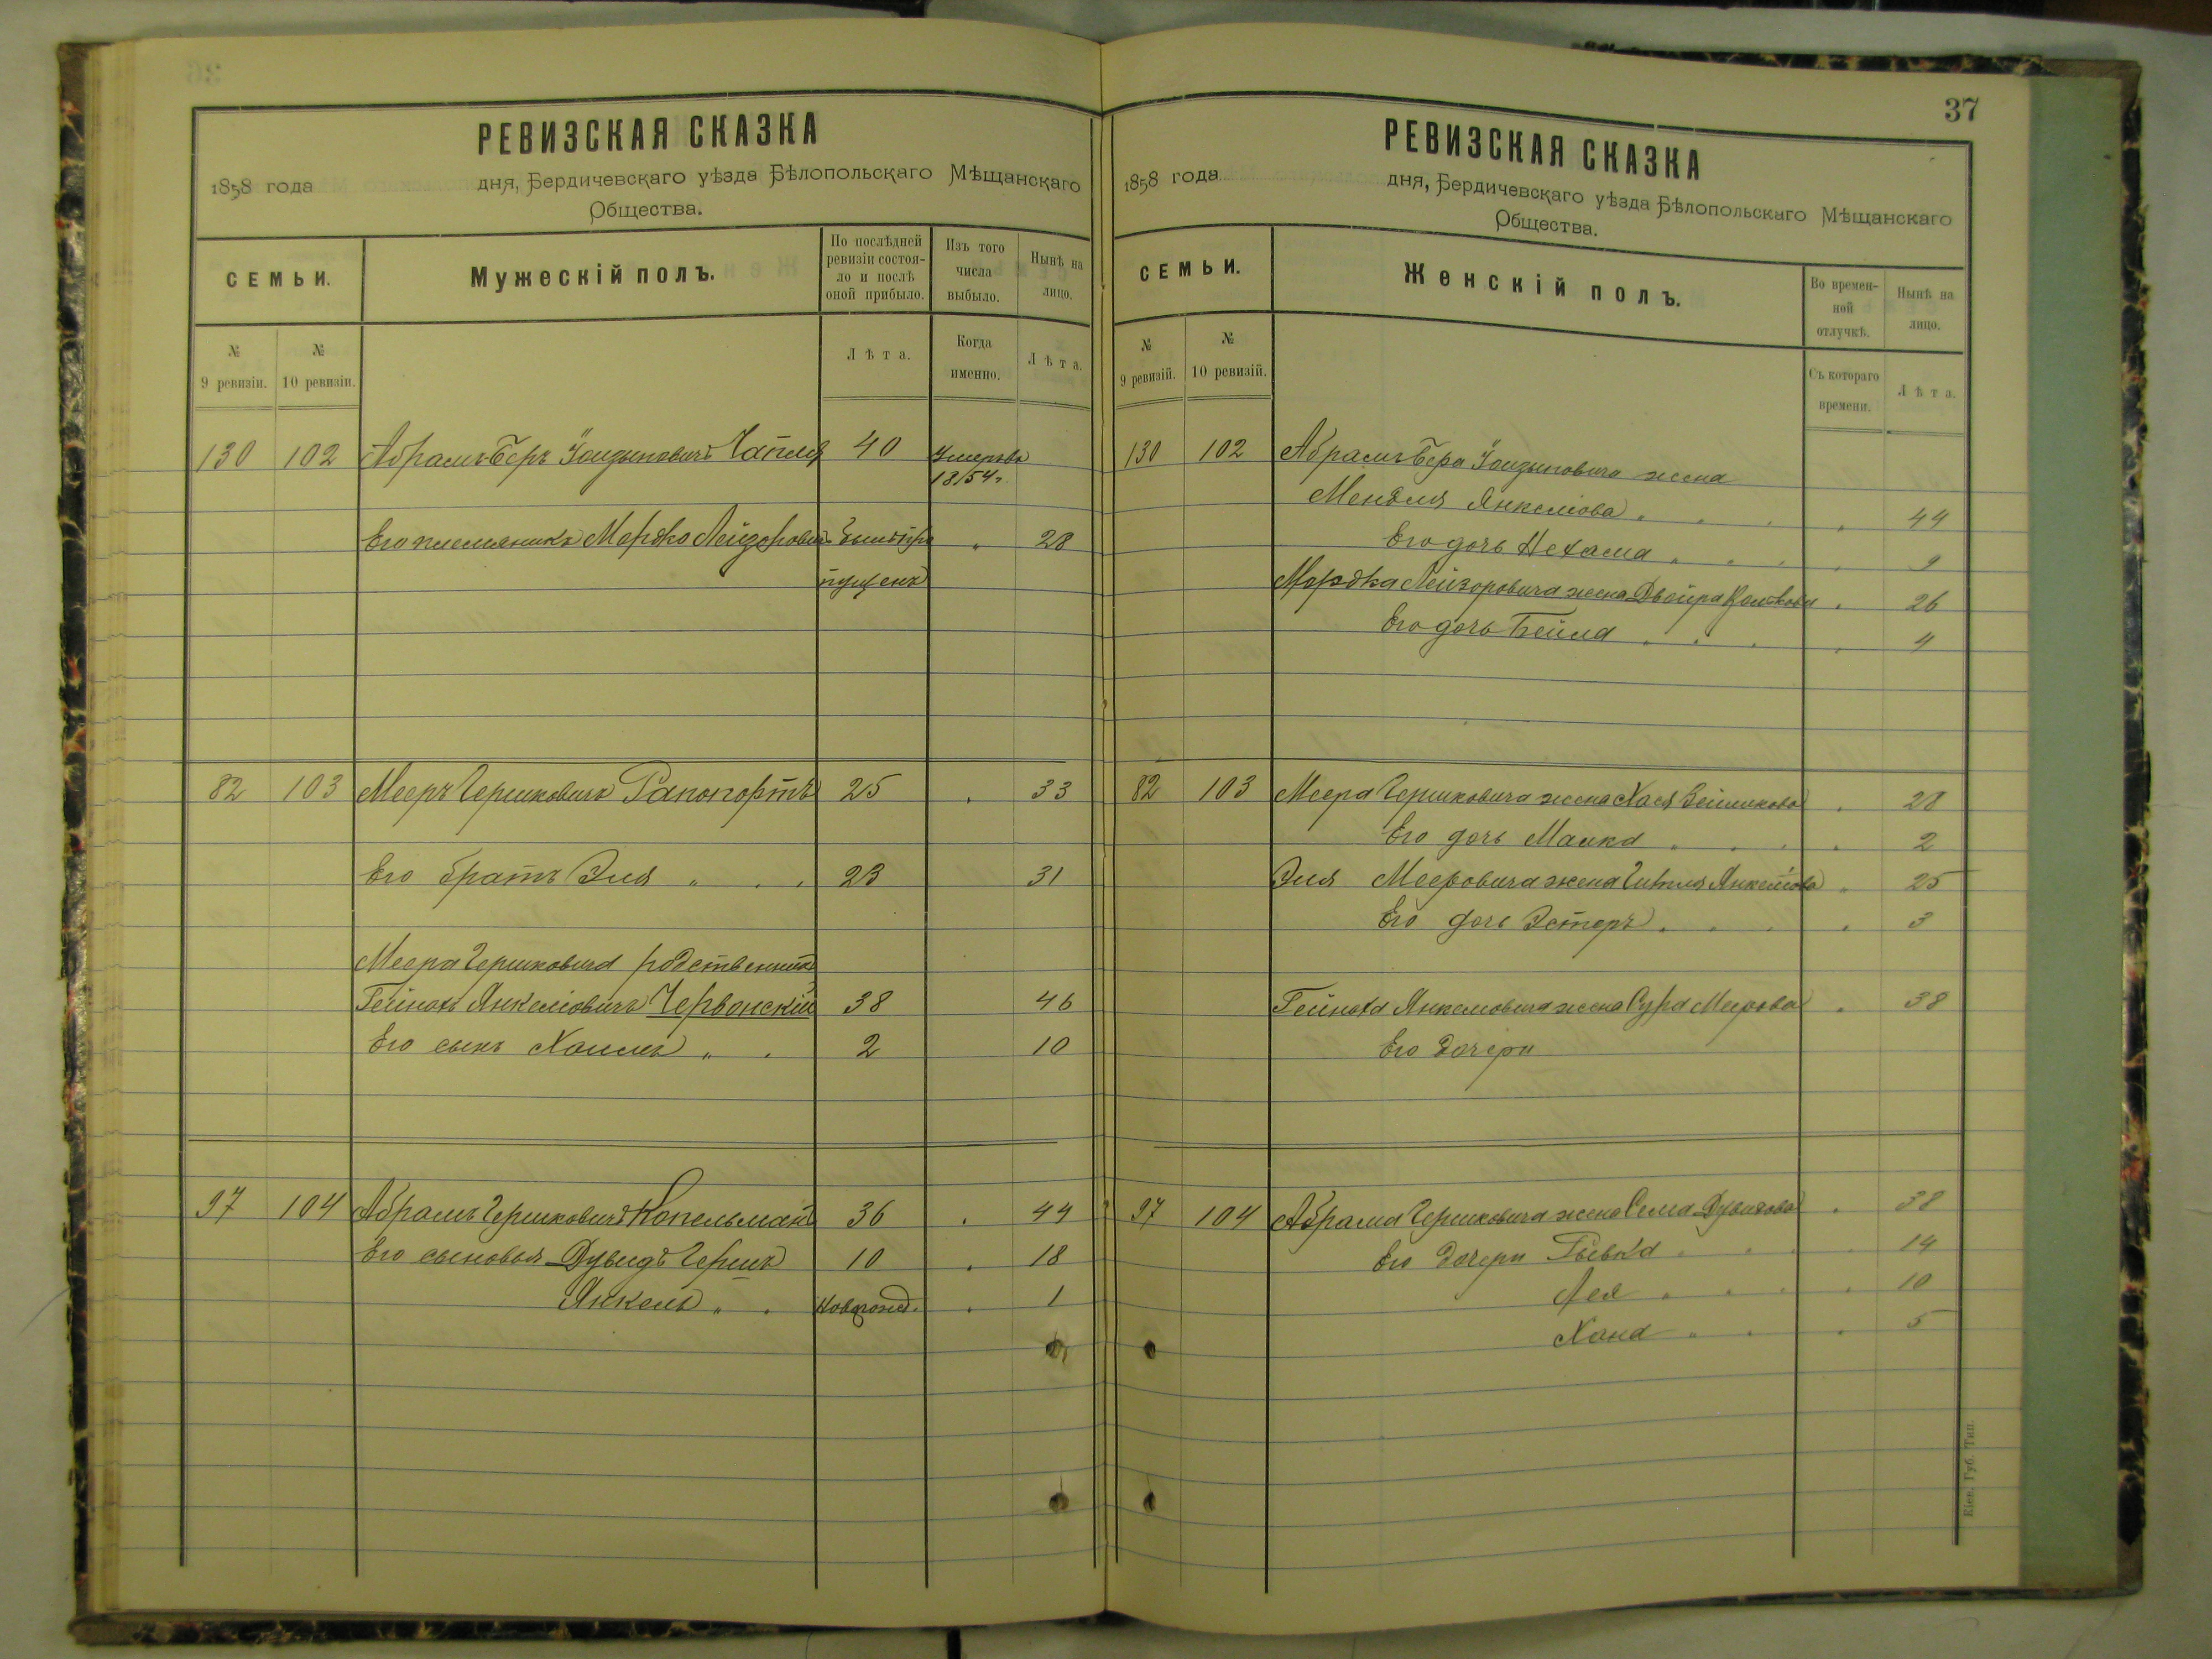 РЕВИЗСКАЯ СКАЗКА
1858 года дня, Бердичевскаго уѣзда Бѣлопольскаго Мѣщанскаго
Общества.
СЕМЬИ.
Мужескій полъ.
По послѣдней ревизіи состояло и послѣ оной прибыло.
Изъ того числа выбыло.
Нынѣ на лицо.
№ 9 ревизіи.
№ 10 ревизіи.
Лѣта.
Когда именно.
Лѣта.
130 102 Абрамъ Беръ Чапля 40 Умеръ въ
1854 г.
Его племяникъ Мордко Лейзоровичъ 28
пущенъ
82 103 Мееръ Гершковичъ Рапопортъ 25 33
Его братъ Эля 23 31
Меера Гершковича родственникъ
Гейнохъ Янкеліовичъ Червонскій 38 46
Его сынъ Хаимъ 2 10
97 104 Абрамъ Гершковичъ Копельманъ 36 44
Его сыновья Дувидъ Гершъ 10 18
Янкель Новорожд. 1
37
РЕВИЗСКАЯ СКАЗКА
1858 года дня, Бердичевскаго уѣзда Бѣлопольскаго Мѣщанскаго
Общества.
СЕМЬИ.
Женскій полъ.
Во временной отлучкѣ.
Нынѣ на лицо.
№ 9 ревизій.
№ 10 ревизій.
Съ котораго времени.
Лѣта.
130 102 Абрамъ Бера жена
Мендля Янкеліова 44
Его дочь Нехама 9
Мордка Лейзоровича жена Двойра 26
Его дочь Бейла 4
82 103 Меера Гершковича жена Хася 28
Его дочь Малка 2
Эля Мееровича жена Гитля Янкеліова 25
Его дочь Эстеръ 3
Гейноха Янкеліовича жена Сура Меерова 38
Его дочери
97 104 Абрама Гершковича жена Сема Дувидова 38
Его дочери Рывка 14
Лея 10
Хана 5
Кіев. Губ. Тип.